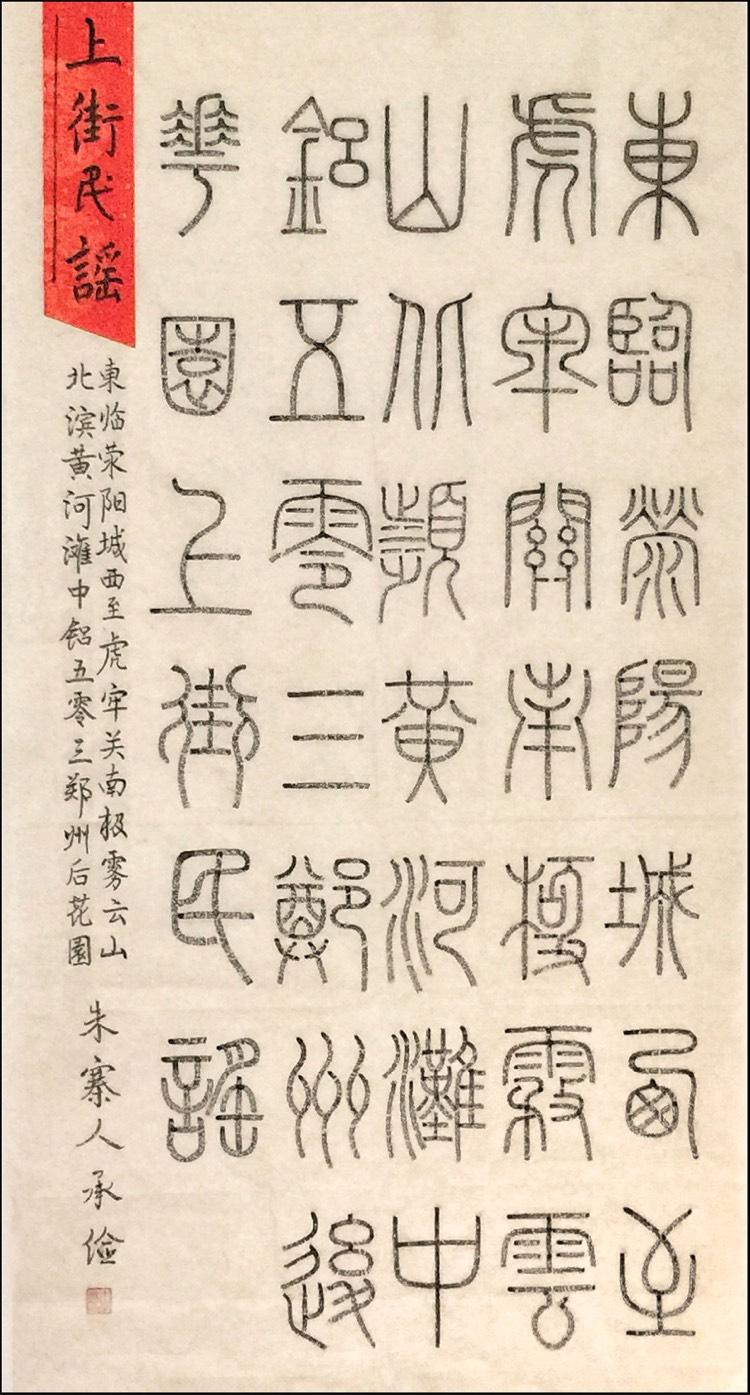 東臨滎陽城西至
虎牢關南極霚雲
山北頻黄河灘中
鋁五零三鄭州後
華園上街民謠
上街民謡
東临荥阳城西至虎牢关南极雾云山
北滨黄河滩中铝五零三郑州后花園
朱寨人承俭